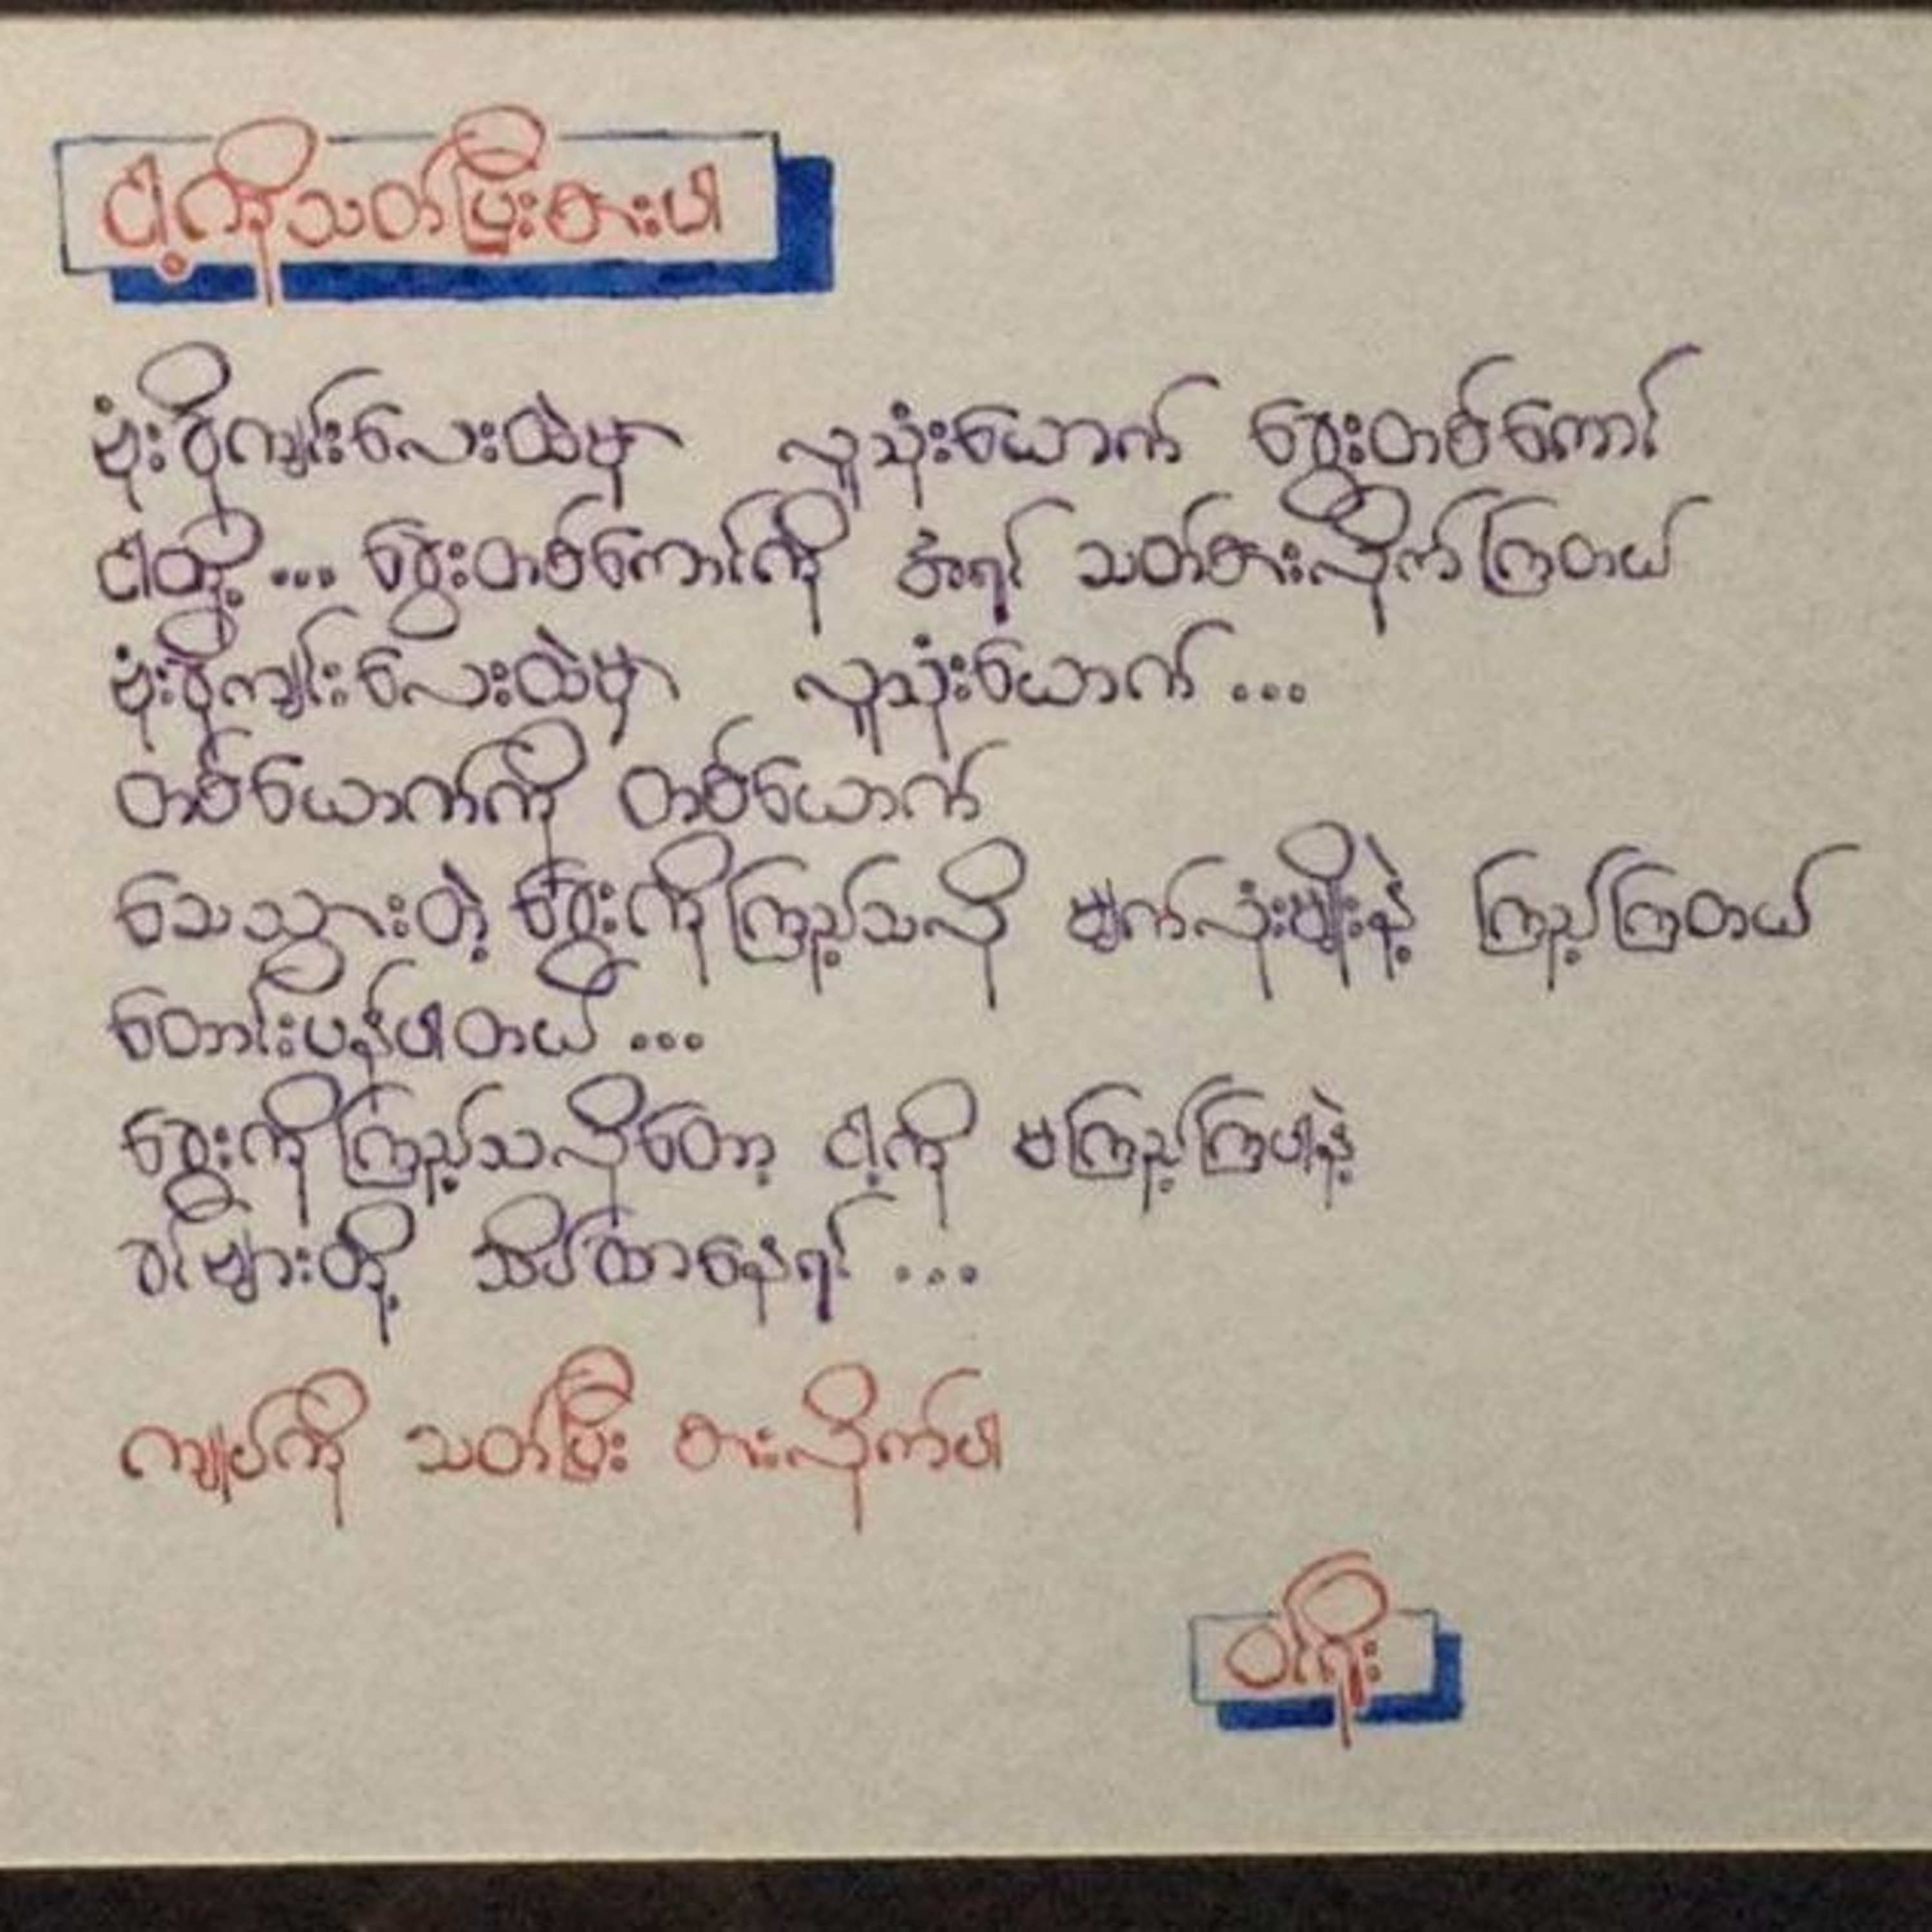 ငါ့ကိုသတ်ပြီးစားပါ
မုံးစိုကျင်းလေးထဲမှာ လူသုံးယောက် ခွေးတစ်ကောင်
ငါတို့ ... ခွေးတစ်ကောင်ကို အရင် သတ်စားလိုက်ကြတယ်
မုံးစိုကျင်းလေးထဲမှာ လူသုံးယောက် ...
တစ်ယောက်ကို တစ်ယောက်
သေသွားတဲ့ ခွေးကိုကြည့်သလို မျက်လုံးမျိုးနဲ့ ကြည့်ကြတယ်
တောင်းပန်ပါတယ် ...
ခွေးကိုကြည့်သလိုတော့ ငါ့ကို မကြည့်ကြပါနဲ့
ခင်များတို့ သိပ်ဆာနေရင် ...
ကျုပ်ကို သတ်ပြီး စားလိုက်ပါ
ဝင်ရိုး